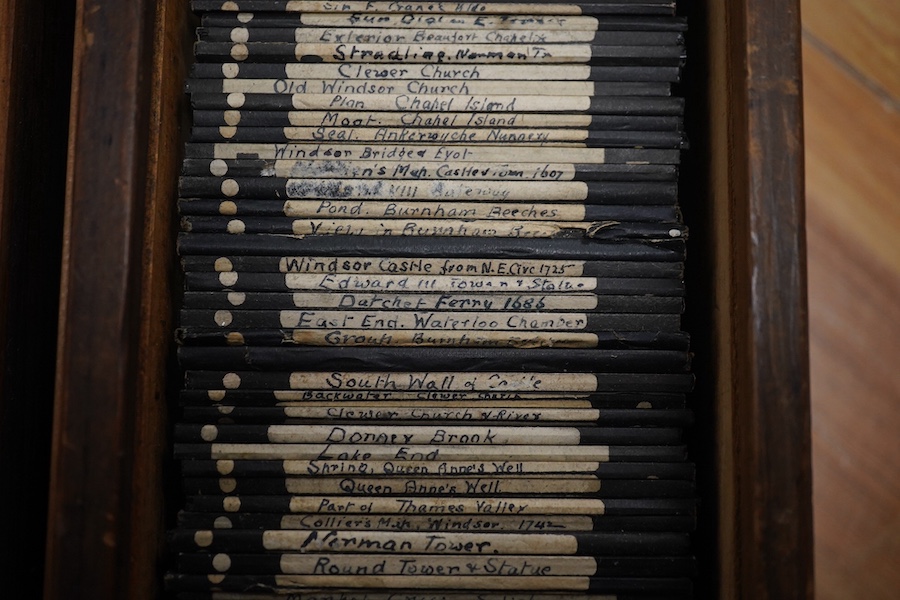 Exterior Beaufort Chapel
Stradling. Norman Tr
Clewer Church
Old Windsor Church
Plan Chapel Island
Moat. Chapel Island
Seal. Ankerwyche Nunnery
Windsor Bridge & Eyot
Map. Castle & Town. 1607
VIII Gateway
Pond. Burnham Beeches
View in Burnham
Windsor Castle from N.E. Circ 1725
Edward III Tower & Statue
Datchet Ferry 1686
East End. Waterloo Chamber
Burnham
South Wall of
Backwater Clewer Church
Clewer Church & River
Dorney Brook
Lake End
Shrine, Queen Anne's Well
Queen Anne's Well
Part of Thames Valley
Collier's Map. Windsor. 1742
Norman Tower.
Round Tower & Statue